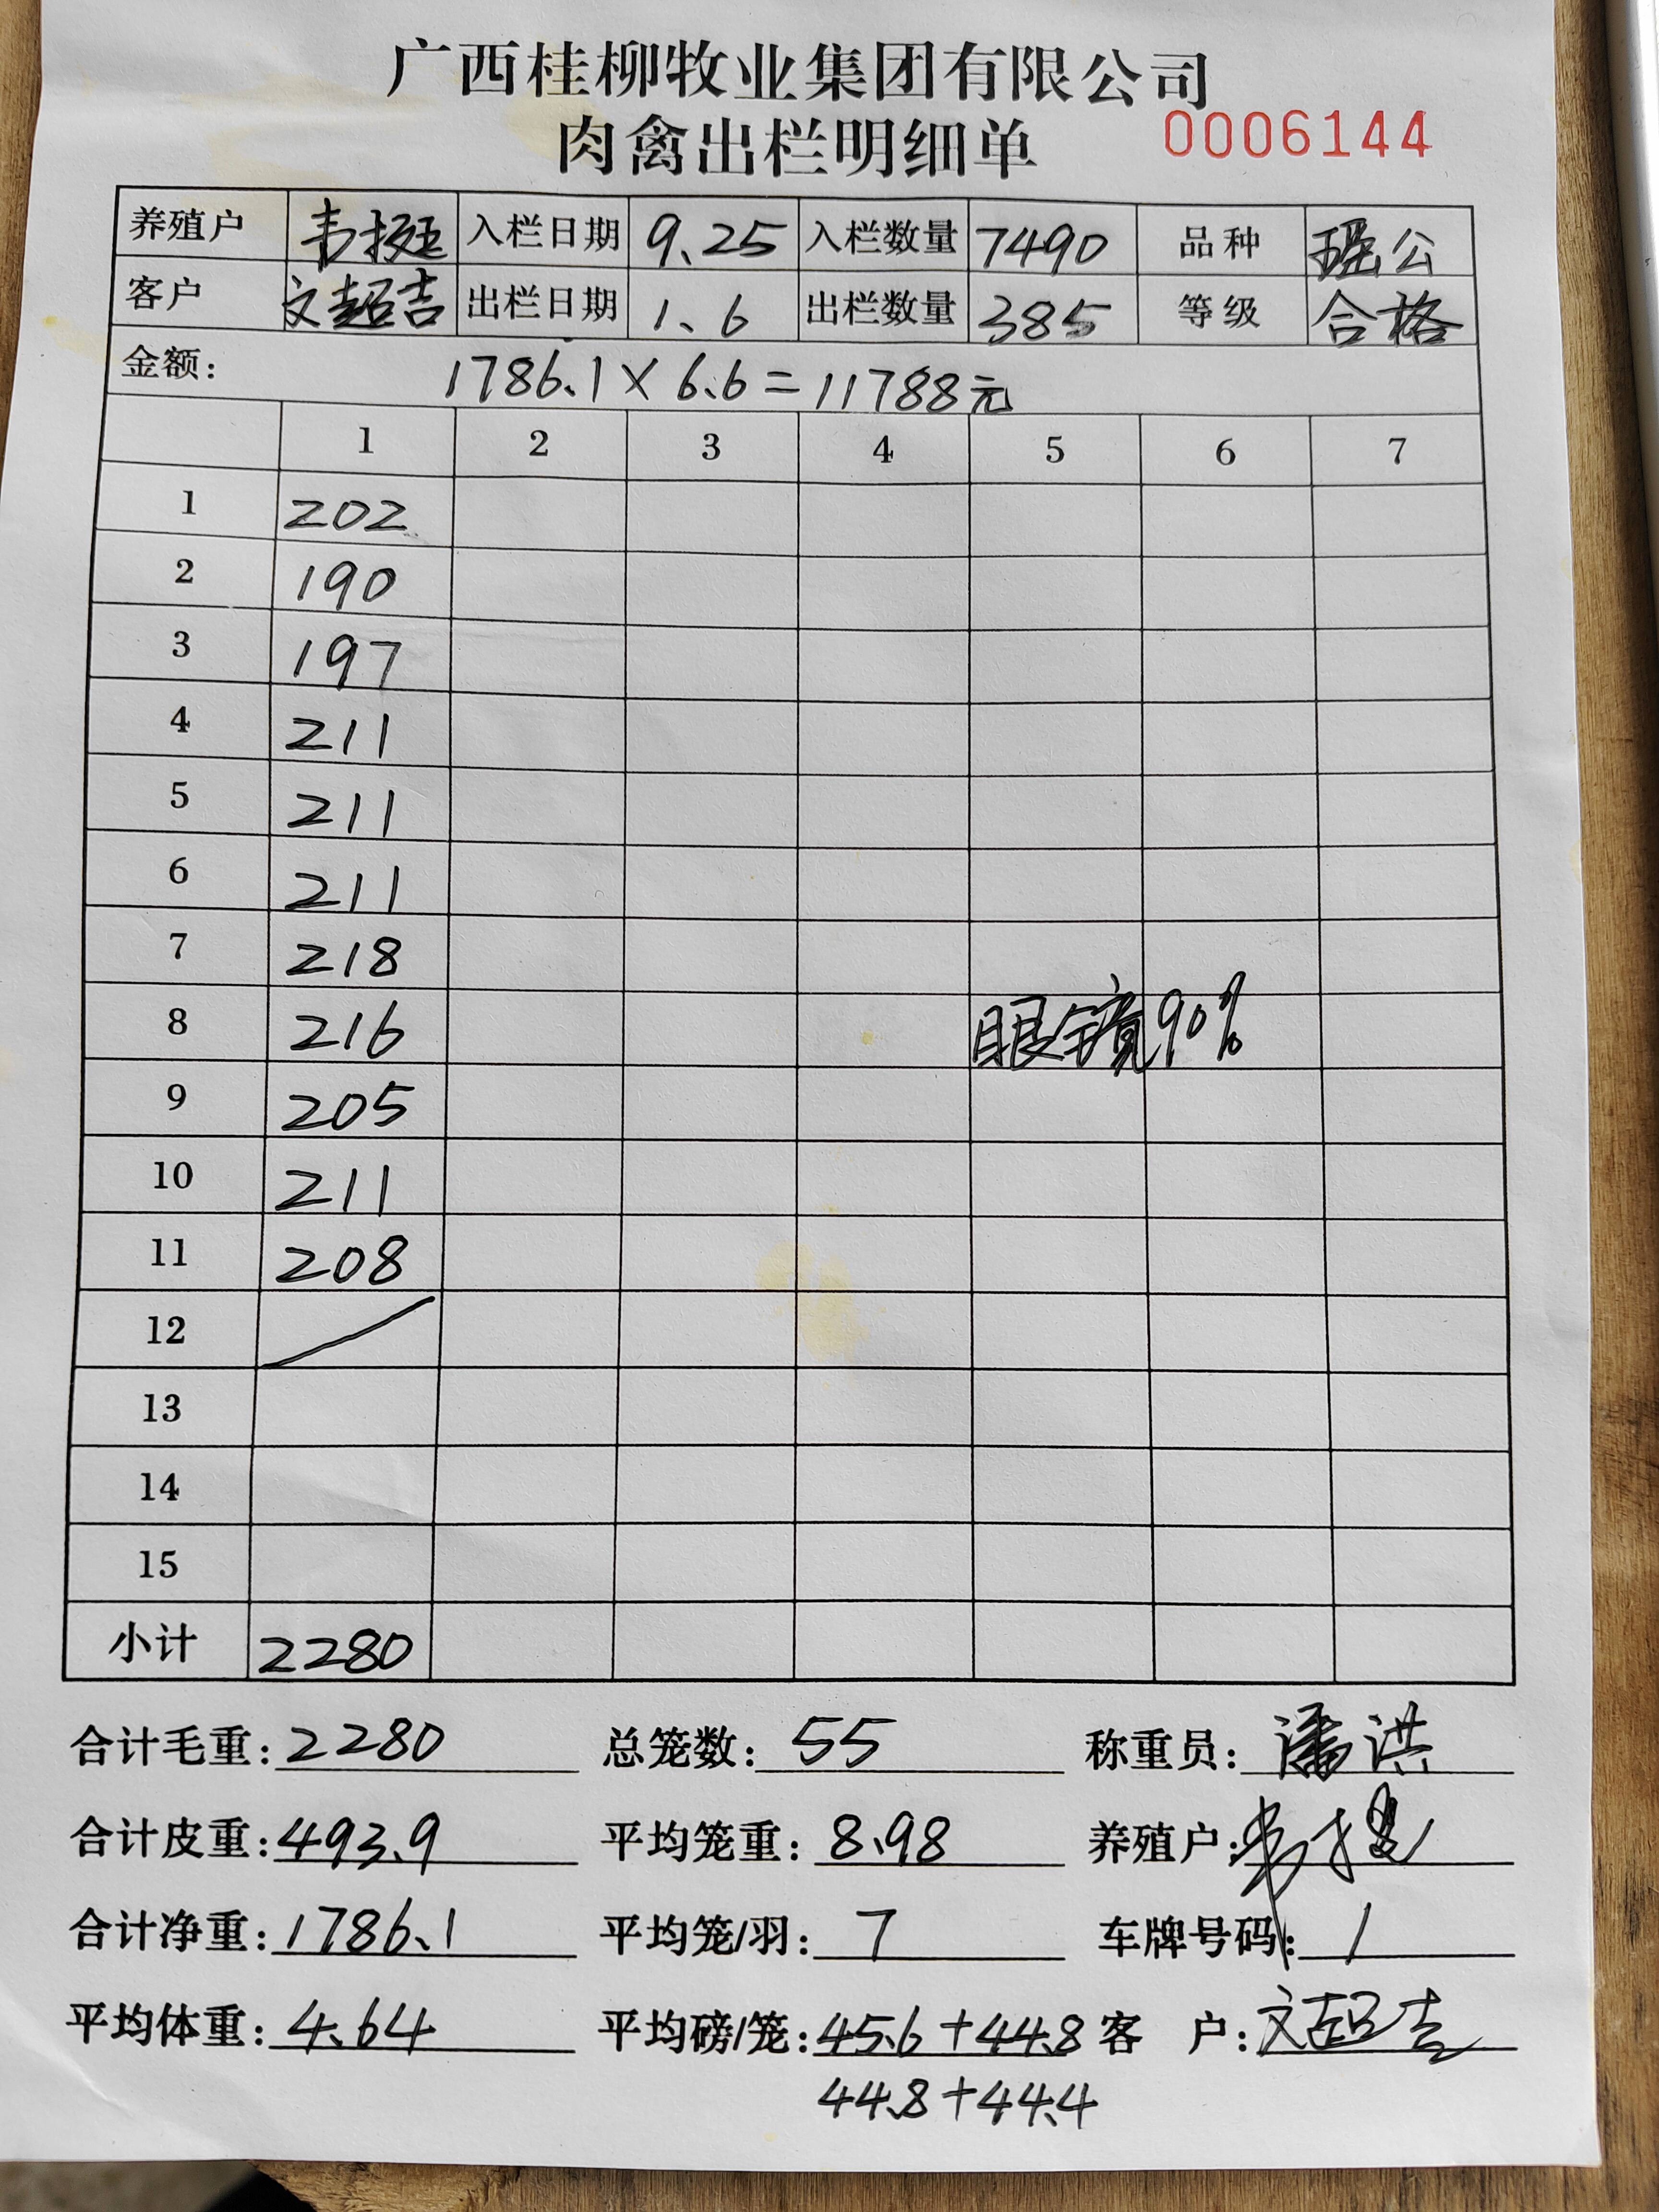 广西桂柳牧业集团有限公司
肉禽出栏明细单 0006144
养殖户 韦挺 入栏日期 9.25 入栏数量 7490 品种 瑶公
客户 文超吉 出栏日期 1.6 出栏数量 385 等级 合格
金额: 1786.1×6.6=11788元
1 2 3 4 5 6 7
1 202
2 190
3 197
4 211
5 211
6 211
7 218
8 216 眼镜90%
9 205
10 211
11 208
12
13
14
15
小计 2280
合计毛重: 2280 总笼数: 55 称重员: 潘洪
合计皮重: 493.9 平均笼重: 8.98 养殖户: 韦挺
合计净重: 1786.1 平均笼/羽: 7 车牌号码: 1
平均体重: 4.64 平均磅/笼: 45.6+44.8 客户: 文超吉
44.8+44.4